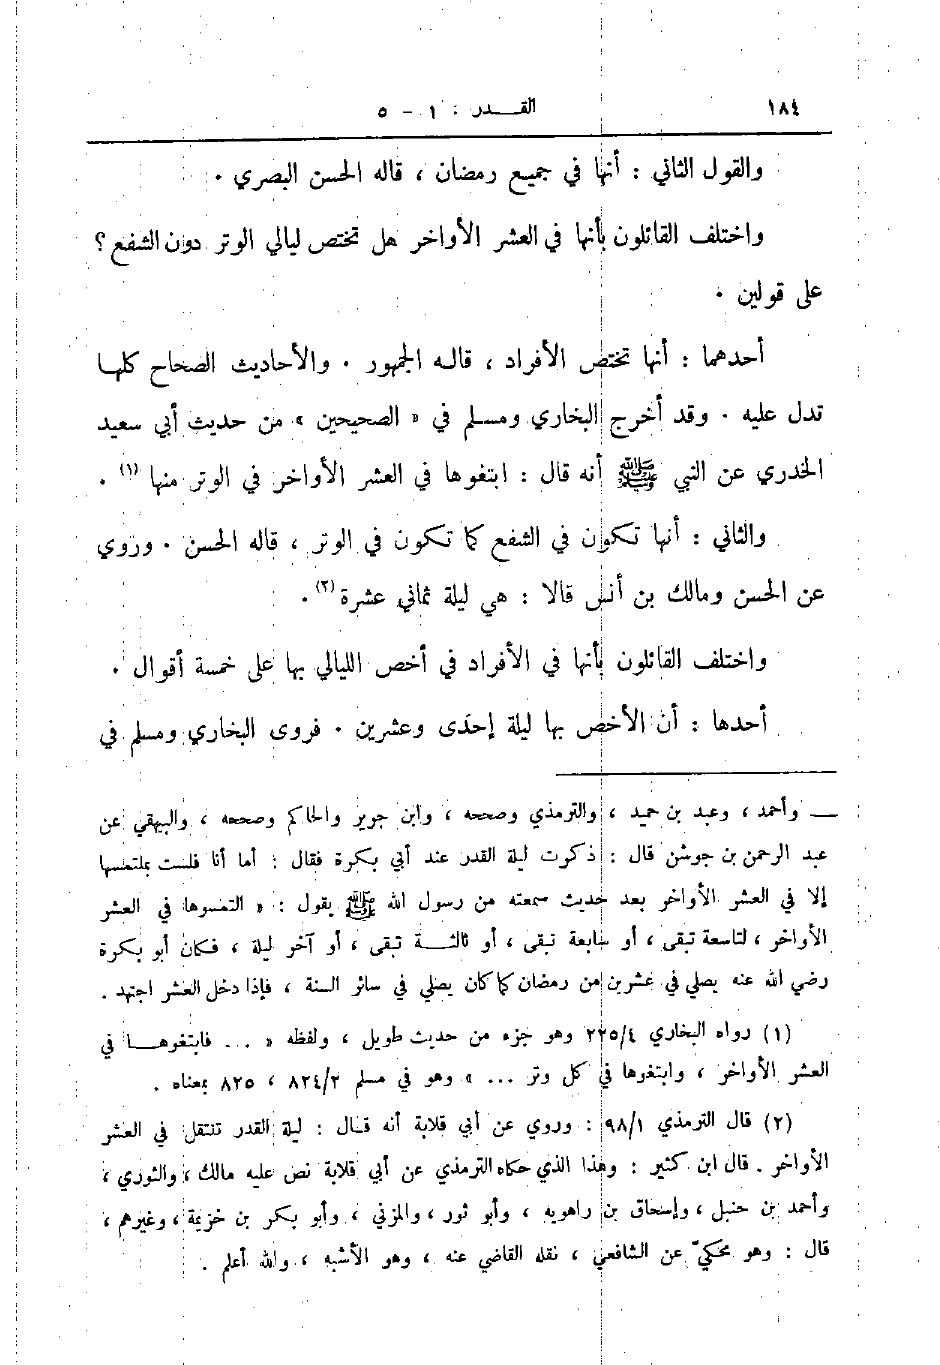 ١٨٤
القـــدر : ١ - ٥
والقول الثاني : أنها في جميع رمضان ، قاله الحسن البصري .
واختلف القائلون بأنها في العشر الأواخر هل تختص ليالي الوتر دون الشفع ؟
على قولين .
أحدهما : أنها تختص الأفراد ، قاله الجمهور . والأحاديث الصحاح كلها
تدل عليه . وقد أخرج البخاري ومسلم في « الصحيحين » من حديث أبي سعيد
الخدري عن النبي ﷺ أنه قال : ابتغوها في العشر الأواخر في الوتر منها (١) .
والثاني : أنها تكون في الشفع كما تكون في الوتر ، قاله الحسن . وروي
عن الحسن ومالك بن أنس قالا : هي ليلة ثماني عشرة (٢) .
واختلف القائلون بأنها في الأفراد في أخص الليالي بها على خمسة أقوال .
أحدها : أن الأخص بها ليلة إحدى وعشرين . فروى البخاري ومسلم في
ــ وأحمد ، وعبد بن حميد ، والترمذي وصححه ، وابن جرير والحاكم وصححه ، والبيهقي عن
عبد الرحمن بن جوشن قال : ذكرت ليلة القدر عند أبي بكرة فقال : أما أنا فلست بملتمسها
إلا في العشر الأواخر بعد حديث سمعته من رسول الله ﷺ يقول : « التمسوها في العشر
الأواخر ، لتاسعة تبقى ، أو سابعة تبقى ، أو ثالثـــة تبقى ، أو آخر ليلة ، فكان أبو بكرة
رضي الله عنه يصلي في عشرين من رمضان كما كان يصلي في سائر السنة ، فإذا دخل العشر اجتهد .
(١) رواه البخاري ٢٢٥/٤ وهو جزء من حديث طويل ، ولفظه « ... فابتغوهـــا في
العشر الأواخر ، وابتغوها في كل وتر ... » وهو في مسلم ٨٢٤/٢ ، ٨٢٥ بمعناه .
(٢) قال الترمذي ٩٨/١ : وروي عن أبي قلابة أنه قـال : ليلة القدر تنتقل في العشر
الأواخر . قال ابن كثير : وهذا الذي حكاه الترمذي عن أبي قلابة نص عليه مالك ، والثوري ،
وأحمد بن حنبل ، وإسحاق بن راهويه ، وأبو ثور ، والمزني ، وأبو بكر بن خزيمة ، وغيرهم ،
قال : وهو محكيّ عن الشافعي ، نقله القاضي عنه ، وهو الأشبه ، والله أعلم .